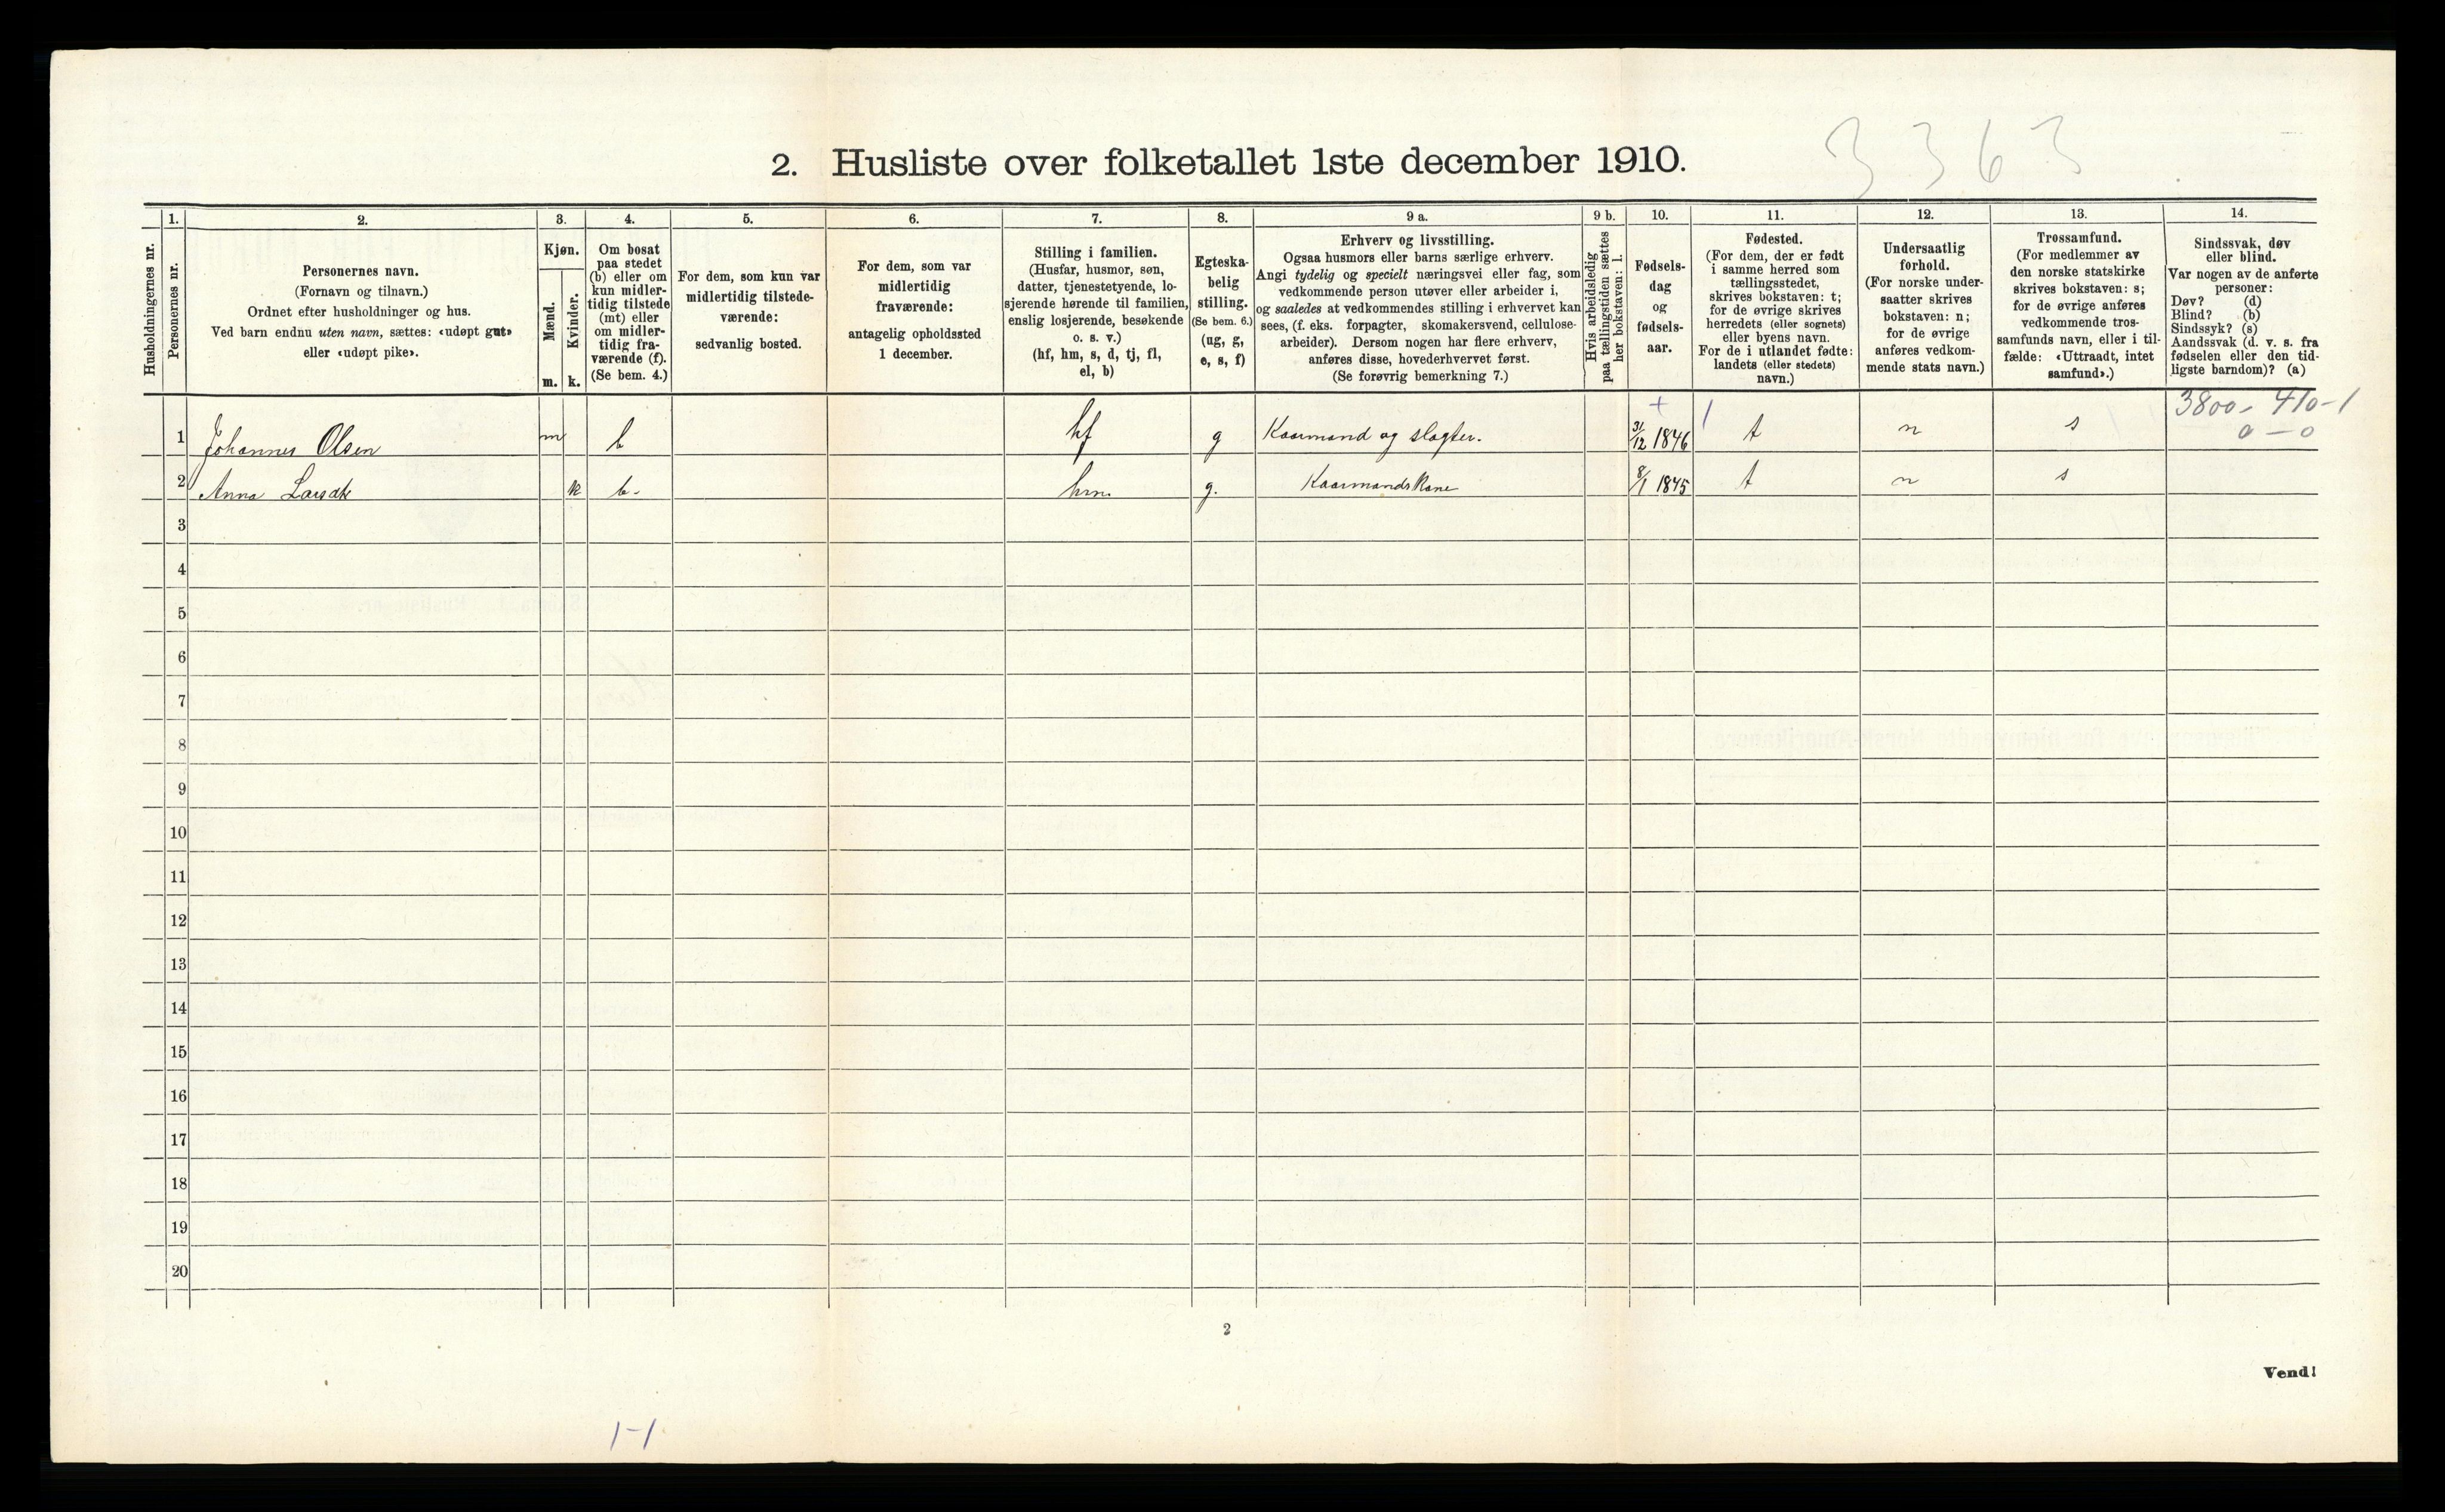 3363
2. Husliste over folketallet 1ste december 1910.
Husholdningernes nr.
1.
Personernes nr.
2.
Personernes navn.
(Fornavn og tilnavn.)
Ordnet efter husholdninger og hus.
Ved barn endnu uten navn, sættes: «udøpt gut»
eller «udøpt pike».
3.
Kjøn.
Mænd.
Kvinder.
m. k.
4.
Om bosat
paa stedet
(b) eller om
kun midler-
tidig tilstede
(mt) eller
om midler-
tidig fra-
værende (f).
(Se bem. 4.)
5.
For dem, som kun var
midlertidig tilstede-
værende:
sedvanlig bosted.
6.
For dem, som var
midlertidig
fraværende:
antagelig opholdssted
1 december.
7.
Stilling i familien.
(Husfar, husmor, søn,
datter, tjenestetyende, lo-
sjerende hørende til familien,
enslig losjerende, besøkende
o. s. v.)
(hf, hm, s, d, tj, fl,
el, b)
8.
Egteska-
belig
stilling.
(Se bem. 6.)
(ug, g,
e, s, f)
9 a.
Erhverv og livsstilling.
Ogsaa husmors eller barns særlige erhverv.
Angi tydelig og specielt næringsvei eller fag, som
vedkommende person utøver eller arbeider i,
og saaledes at vedkommendes stilling i erhvervet kan
sees, (f. eks. forpagter, skomakersvend, cellulose-
arbeider). Dersom nogen har flere erhverv,
anføres disse, hovederhvervet først.
(Se forøvrig bemerkning 7.)
9 b.
Hvis arbeidsledig
paa tællingstiden sættes
her bokstaven: l.
10.
Fødsels-
dag
og
fødsels-
aar.
11.
Fødested.
(For dem, der er født
i samme herred som
tællingsstedet,
skrives bokstaven: t;
for de øvrige skrives
herredets (eller sognets)
eller byens navn.
For de i utlandet fødte:
landets (eller stedets)
navn.)
12.
Undersaatlig
forhold.
(For norske under-
saatter skrives
bokstaven: n;
for de øvrige
anføres vedkom-
mende stats navn.)
13.
Trossamfund.
(For medlemmer av
den norske statskirke
skrives bokstaven: s;
for de øvrige anføres
vedkommende tros-
samfunds navn, eller i til-
fælde: «Uttraadt, intet
samfund».)
14.
Sindssvak, døv
eller blind.
Var nogen av de anførte
personer:
Døv? (d)
Blind? (b)
Sindssyk? (s)
Aandssvak (d. v. s. fra
fødselen eller den tid-
ligste barndom)? (a)
3800 - 410 - 1
0 - 0
1 Johannes Olsen m b hf g Kaarmand og slagter. 31/12 1846 t n s
2 Anna Larsdt k b. hm. g. Kaarmandskone 8/1 1845 t n s
3
4
5
6
7
8
9
10
11
12
13
14
15
16
17
18
19
20
2
Vend!
1-1